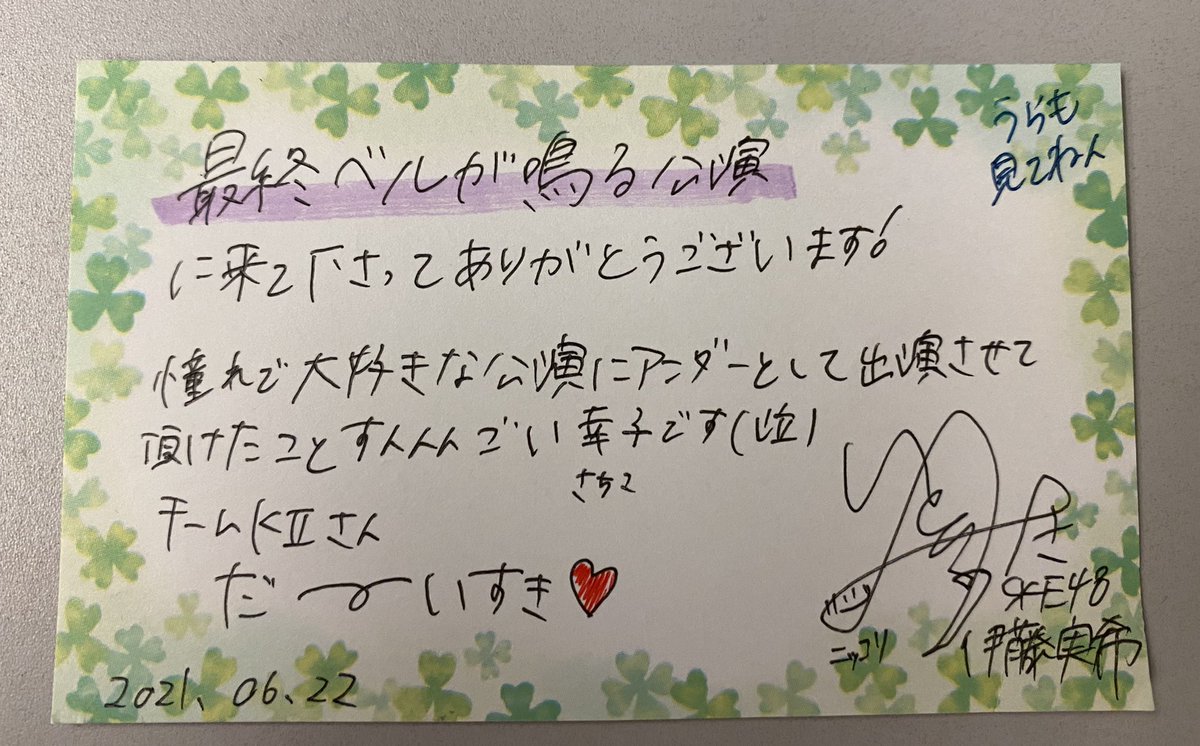 うらも
見てねん
最終ベルが鳴る公演
に来て下さってありがとうございます!
憧れで大好きな公演にアンダーとして出演させて
頂けたことすんんんごい幸子です(泣)
さちこ
チームKⅡさん
だ〜いすき
ニッコリ
SKE48
伊藤実希
2021.06.22